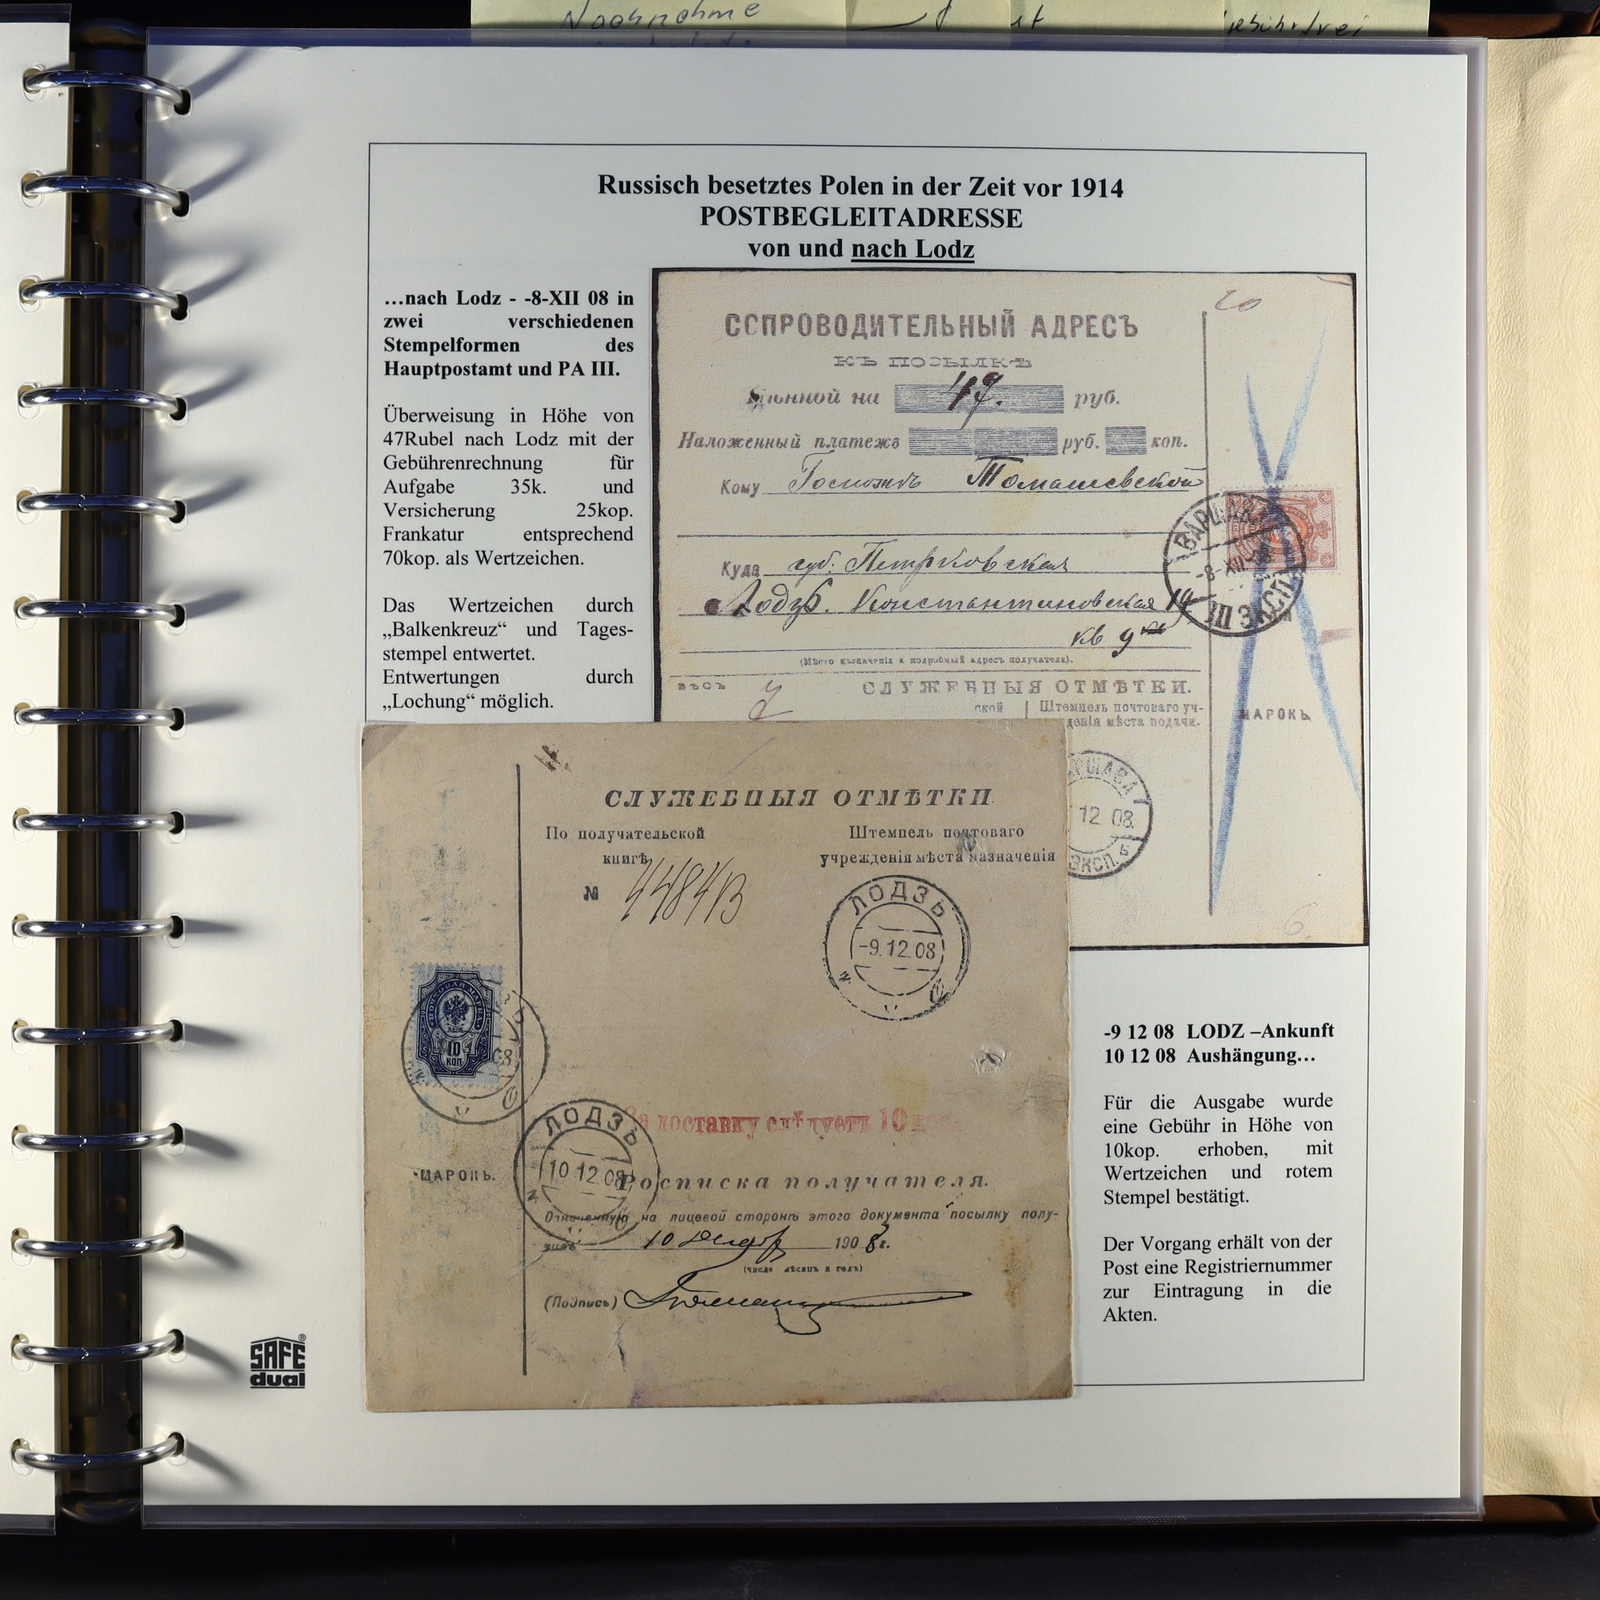 Nachnahme
gebührfrei
Russisch besetztes Polen in der Zeit vor 1914
POSTBEGLEITADRESSE
von und nach Lodz
…nach Lodz - -8-XII 08 in
zwei verschiedenen
Stempelformen des
Hauptpostamt und PA III.
Überweisung in Höhe von
47Rubel nach Lodz mit der
Gebührenrechnung für
Aufgabe 35k. und
Versicherung 25kop.
Frankatur entsprechend
70kop. als Wertzeichen.
Das Wertzeichen durch
„Balkenkreuz“ und Tages-
stempel entwertet.
Entwertungen durch
„Lochung“ möglich.
СОПРОВОДИТЕЛЬНЫЙ АДРЕСЪ
КЪ ПОСЫЛКѢ
Цѣнной на 47. руб.
Наложенный платежъ руб. коп.
Кому Госпожѣ Томашевской
Куда губ. Петрковская
Лодзь. Константиновская 19
кв 9
(Мѣсто назначенія и подробный адресъ получателя).
ВАРШАВА
-8-XII 08
III ЭКСП.
вѣсъ
СЛУЖЕБНЫЯ ОТМѢТКИ.
ской
Штемпель почтоваго уч-
денія мѣста подачи.
МАРОКЪ
ВАРШАВА
12 08.
ЭКСП.
СЛУЖЕБНЫЯ ОТМѢТКИ
По получательской
книгѣ
№ 4484/13
Штемпель почтоваго
учрежденія мѣста назначенія
ЛОДЗЬ
-9.12.08
10 КОП.
За доставку слѣдуетъ 10 коп.
МАРОКЪ.
ЛОДЗЬ
10.12.08
Росписка получателя.
Означенную на лицевой сторонѣ этого документа посылку полу-
чилъ 10 Декабр 1908 г.
(число мѣсяцъ и годъ)
(Подпись)
-9 12 08 LODZ –Ankunft
10 12 08 Aushängung…
Für die Ausgabe wurde
eine Gebühr in Höhe von
10kop. erhoben, mit
Wertzeichen und rotem
Stempel bestätigt.
Der Vorgang erhält von der
Post eine Registriernummer
zur Eintragung in die
Akten.
SAFE®
dual